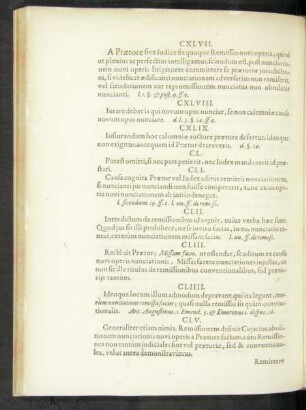 CXLVII.
A Prætore sive Iudice fit quoque Remissio novi operis, quod
ut plenius ac perfectius intelligamus, sciendum est, post nunciatio-
nem novi operis litigatores committere se prætoriæ jurisdictio-
ni, si videlicet ædificans nunciationem adversarius non remiserit,
vel satisdationem aut repromissionem nunciatus non obtulerit
nuncianti.
CXLVIII.
Iurare debet is qui novum opus nunciat, se non calumniæ causa
novum opus nunciare.
CXLIX.
Iusjurandum hoc calumniæ auctore prætore defertur, ideoque
non exigitur antequam id Prætor decreverit.
CL.
Potest omitti, si nec pars petierit, nec Iudex mandaverit id præ-
stari.
CLI.
Causa cognita Prætor vel Iudex aditus remittit nunciationem,
si nuncianti jus nunciandi non fuisse compererit,
novi nunciationem ab initio denegat.
CLII.
Interdictum de remissionibus id arguit, cujus verba hæc sunt.
Quod jus sit illi prohibere, ne se invito fiat, in eo, nunciatio te-
neat, ceterum nunciationem missam facio.
CLIII.
Recte ait Prætor; Missam facio, ut ostendat, se aditum ex causis
novi operis nunciationem, Missas facere nunciationes injustas, ut
non sit ille titulus de remissionibus conventionalibus, sed prætoriis
tantum.
CLIIII.
Ideoque locum illum admodum depravant, qui ita legunt,
nunciationem remissa facio; quasi nulla remissio sit quàm conven-
tionalis. Ant. Augustinus 1. Emend. 3. & Duarenus 1. disput. 16.
CLV.
Generaliter etiam nimis, Remissionem definit Cujacius, aboliti-
onem nunciationis novi operis à Prætore factam: cum Remissio
non tantùm judicialis fiat vel prætoria, sed & conventiona-
les, velut antea demonstravimus.
Remittere